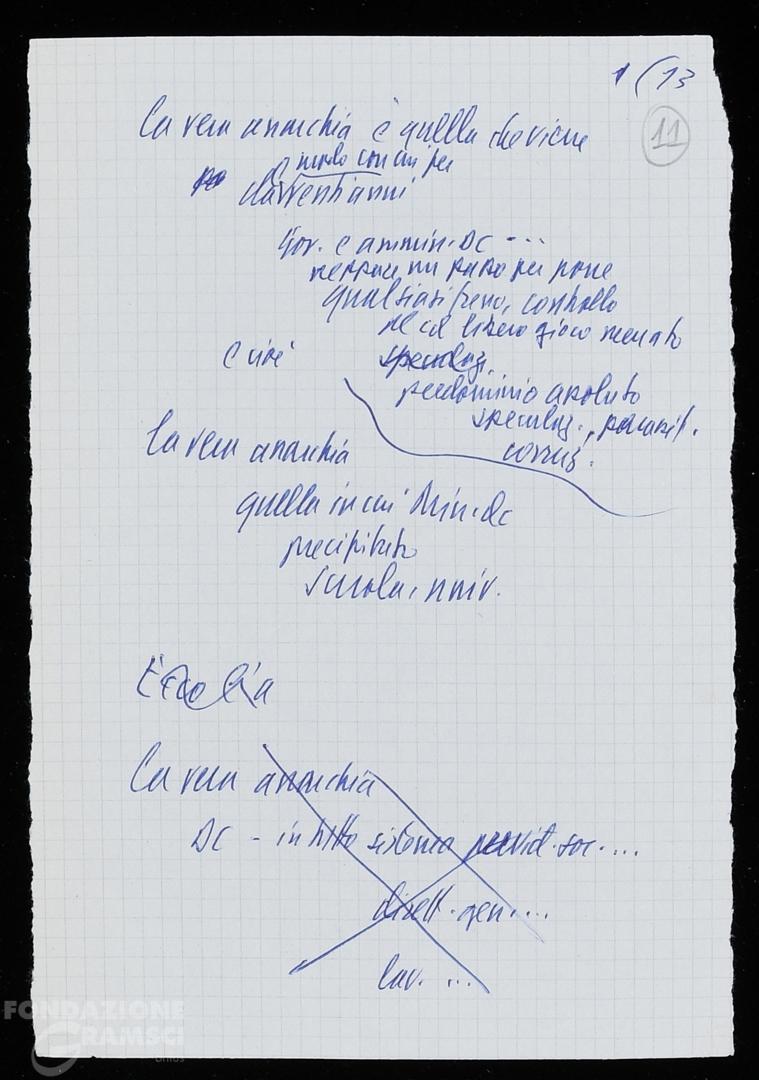 1 (13
11
La vera anarchia è quella che viene
modo con cui per
da vent'anni
Gov. e ammin. DC ...
neppure un passo per porre
qualsiasi freno, controllo
né col libero gioco mercato
e cioè speculaz.
predominio assoluto
speculaz., parassit.
corruz.
La vera anarchia
quella in cui Min. dc
precipitato
scuola, univ.
La vera anarchia
DC - in tutto sistema previd. soc. ...
dirett. gen. ...
lav. ...
FONDAZIONE
GRAMSCI
onlus